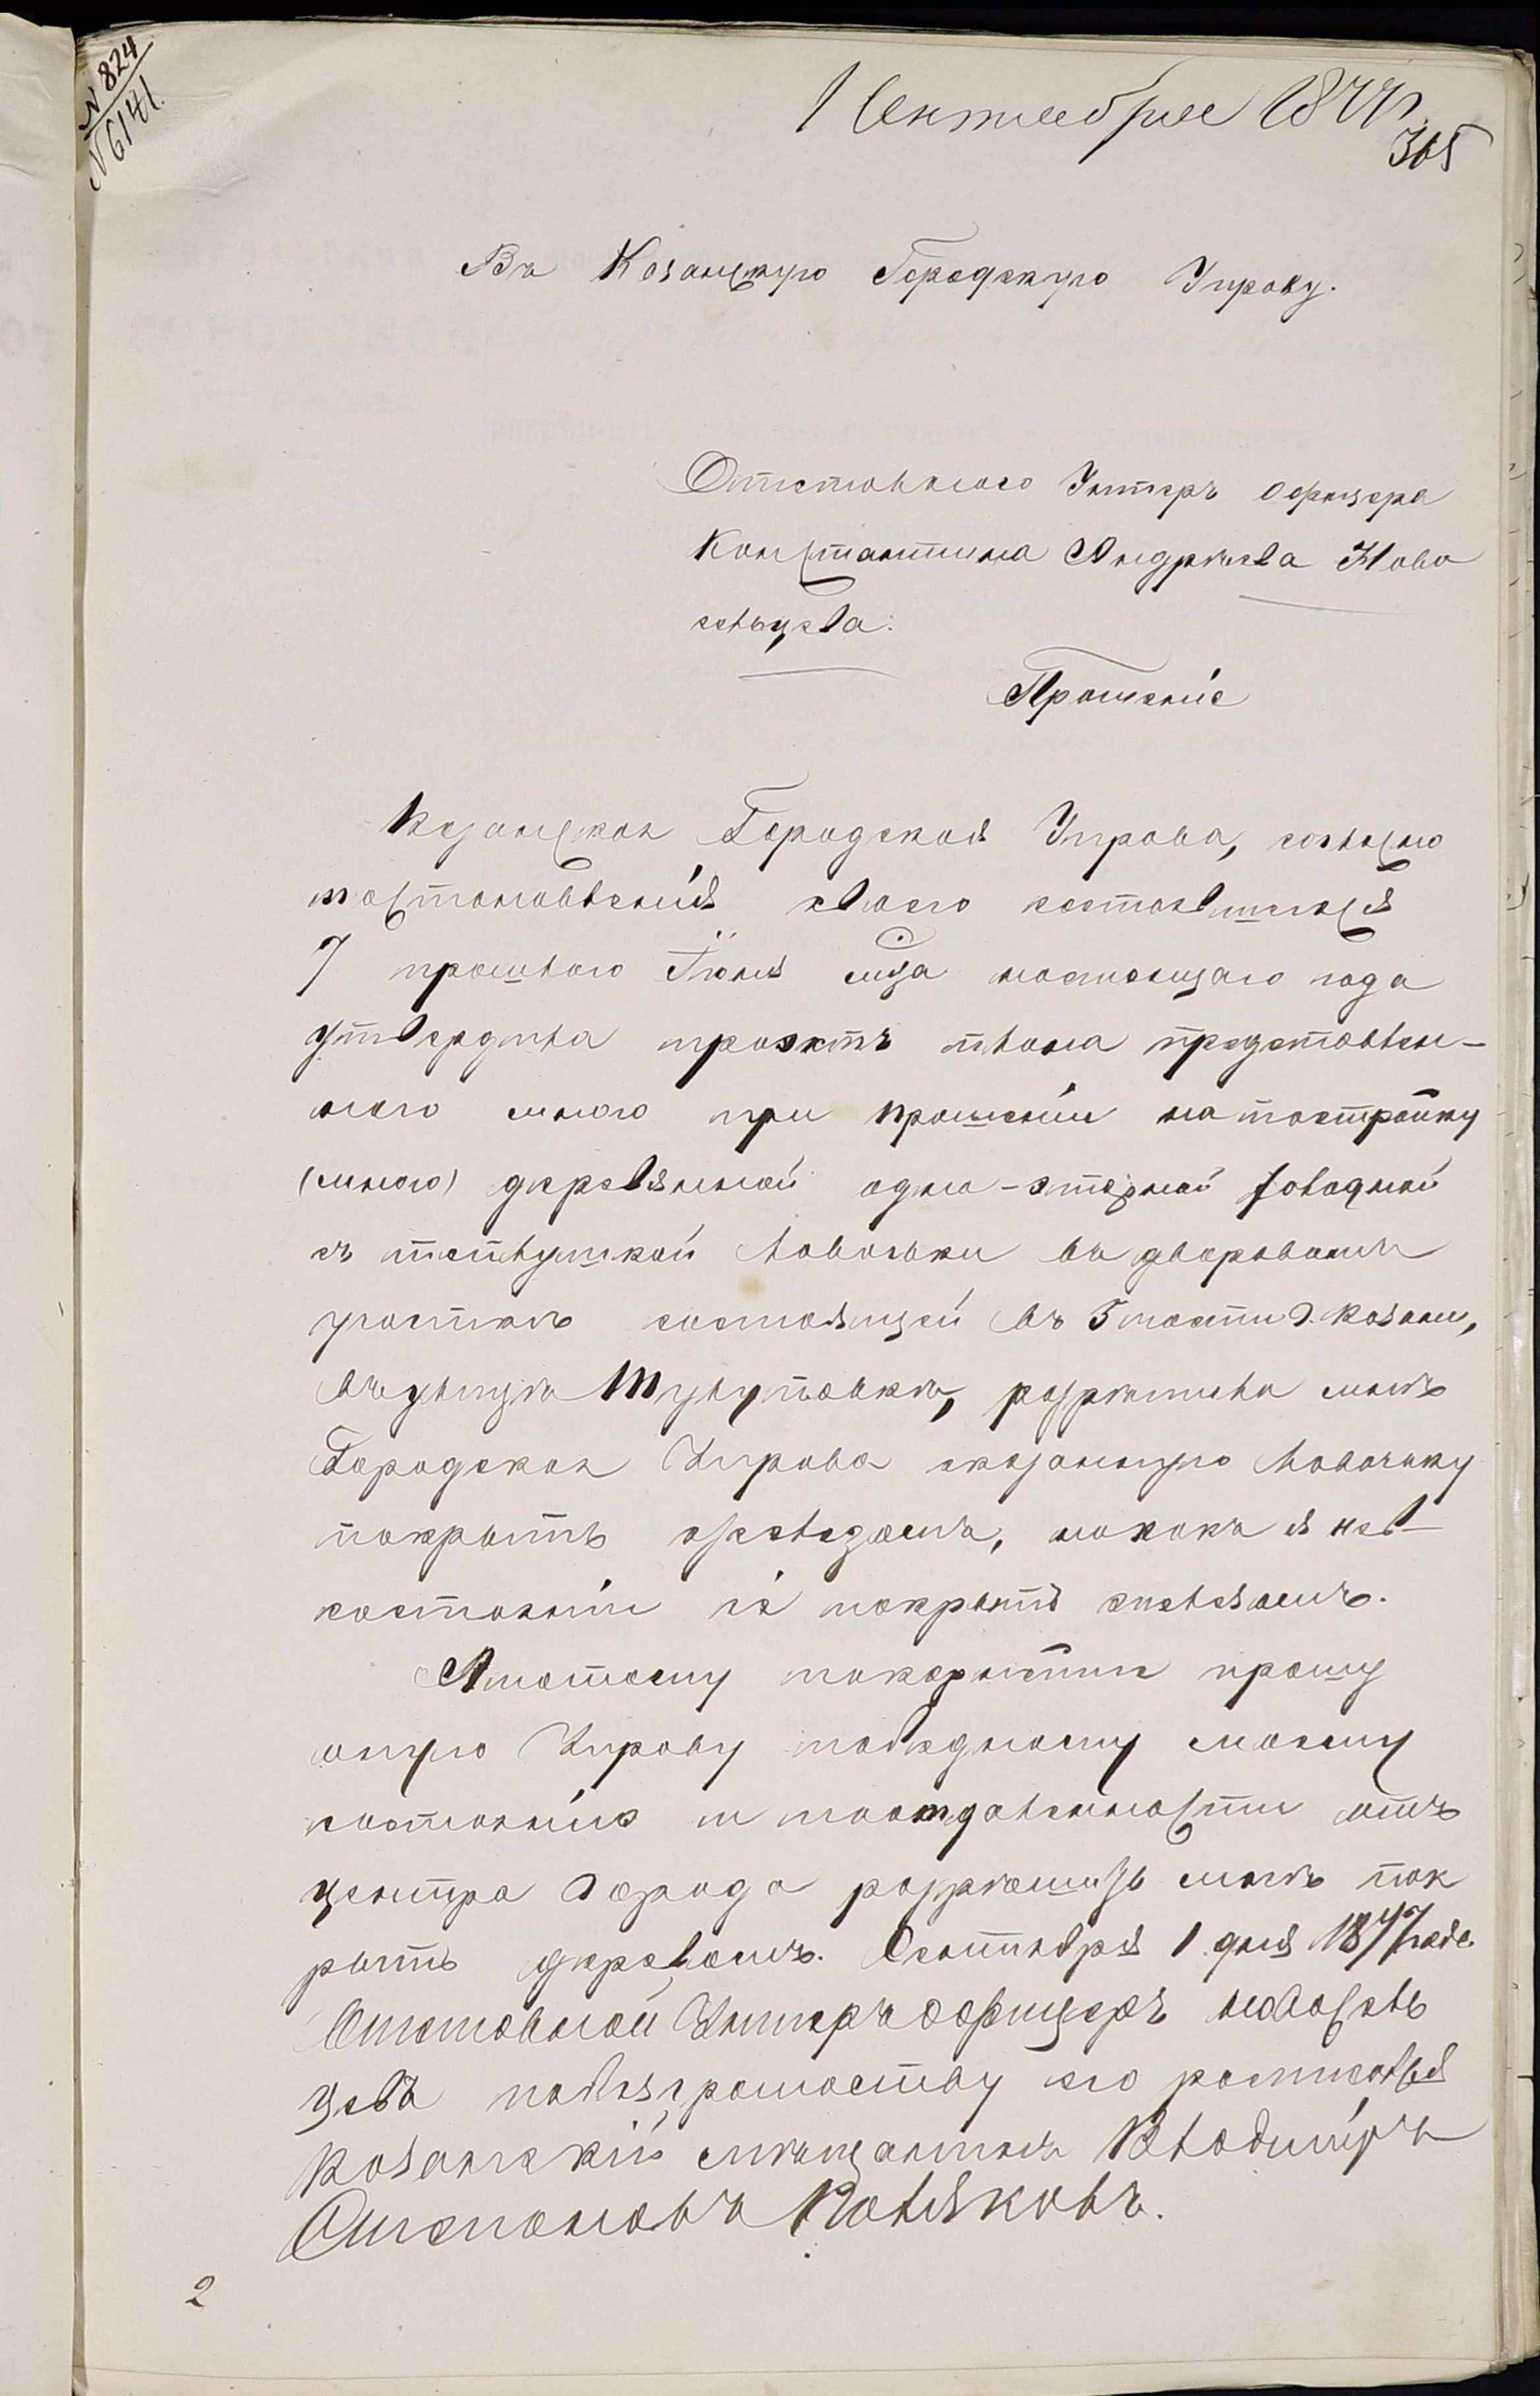 N 824
N 6141.
1 Сентября 1877
365
Въ Казанскую Городскую Управу.
Отставнаго Унтеръ офицера
Константина Андреева Ново
сельцева.
Прошеніе
Казанская Городская Управа, согласно
постановленія своего состоявшегося
7 прошлаго Іюня м-ца настоящаго года
утвердила проэктъ плана представлен-
наго мною при прошеніи на постройку
(мною) деревянной одно-этажной холодной
съ теплушкой лавочки въ дворовомъ
участкѣ состоящей въ 5 части г. Казани,
въ улицѣ Тулуповкѣ, разрѣшила мнѣ
Городская Управа сказанную лавочку
покрыть желѣзомъ, но какъ я не въ
состояніи ея покрыть желѣзомъ.
А потому покорнѣйше прошу
оную Управу по бѣдному моему
состоянію и по отдаленности отъ
центра города разрѣшить мнѣ пок
рыть деревомъ. Сентября 1 дня 1877 года
Отставной Унтеръ офицеръ Новосель
цевъ по безграмотству его росписался
Казанскій мѣщанинъ Владиміръ
Степановъ Поляковъ.
2